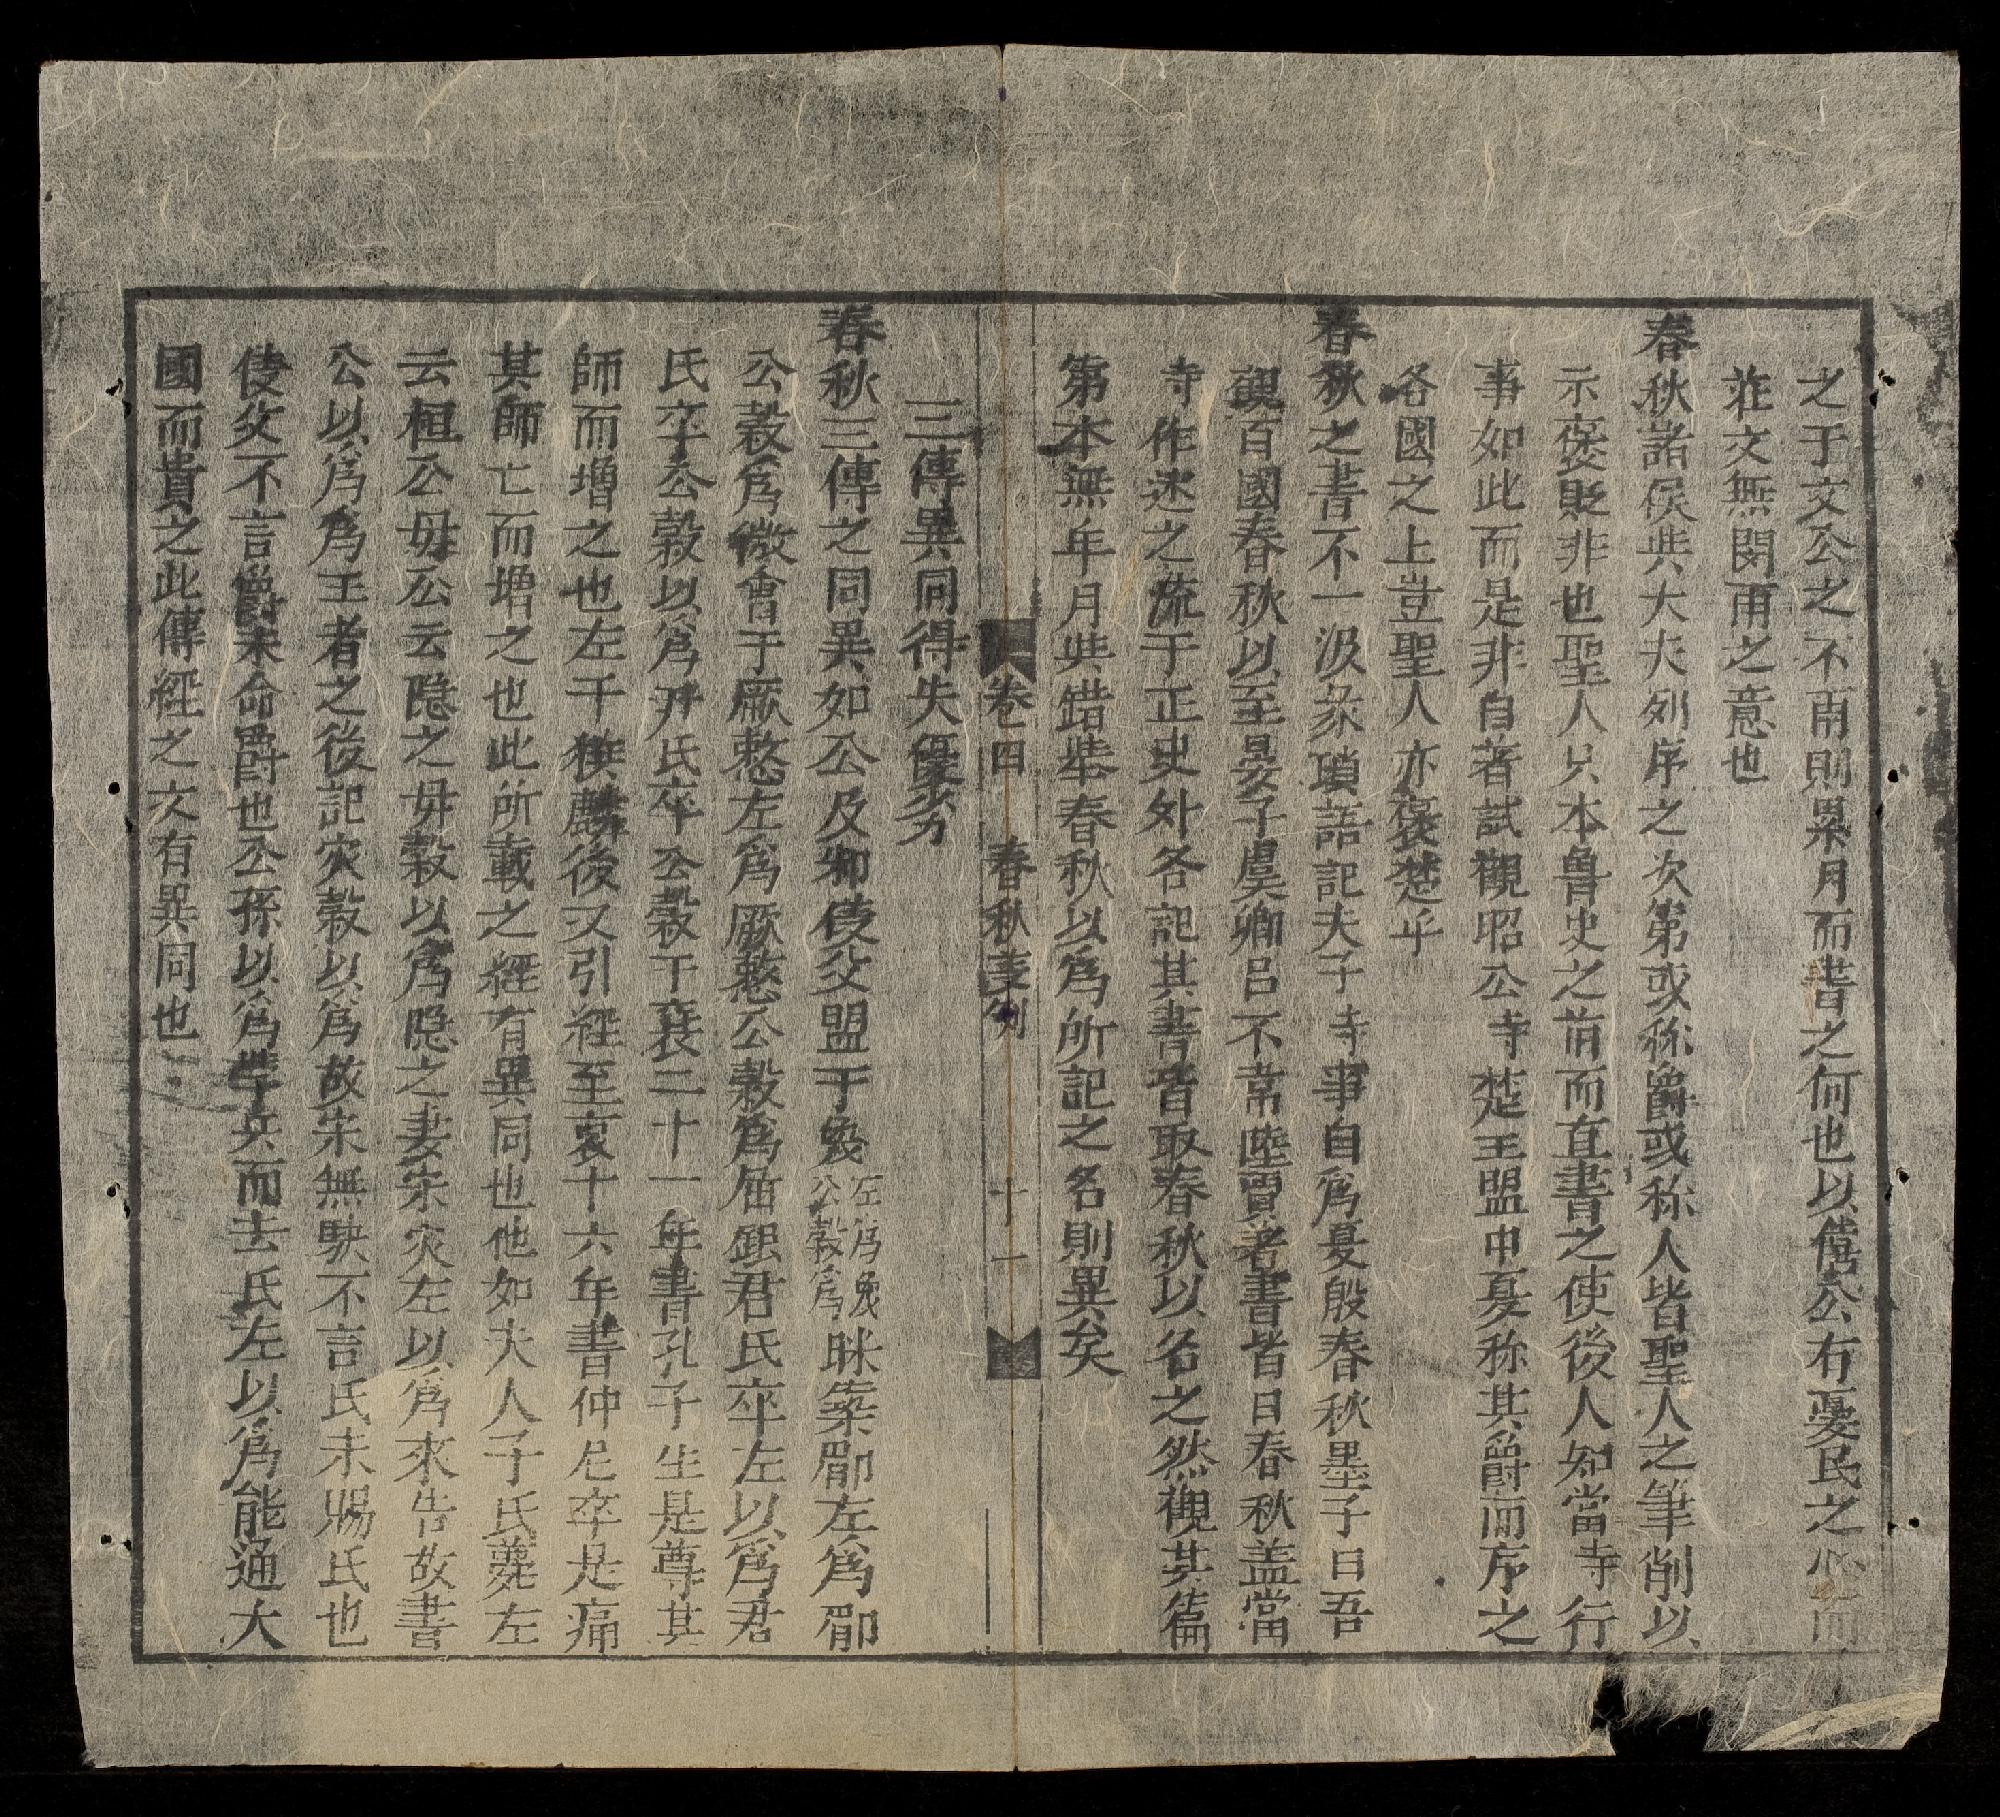 之于文公之不雨則累月而書之何也以僖公有憂民之心而
莊文無閔雨之意也
春秋諸侯與大夫列序之次第或称爵或称人皆聖人之筆削以
示褒貶非也聖人只本魯史之前而直書之使後人知當寺行
事如此而是非自著試觀昭公寺楚王盟中夏称其爵而序之
各國之上豈聖人亦褒楚乎
春秋之書不一汲冢瑣語記夫子寺事自為夏殷春秋墨子曰吾
覌百國春秋以至晏子虞卿吕不韋陸賈著書皆曰春秋盖當
寺作述之流于正史外各記其書皆取春秋以名之然觀其篇
第本無年月與錯举春秋以為所記之名則異矣
卷四 春秋䓁列 十一
三傳異同得失優劣
春秋三傳之同異如公及邾儀父盟于蔑
左為蔑
公榖為
眛築郿左為郿
公榖為微會于厥憖左為厥憖公榖為屈銀君氏卒左以為君
氏卒公榖以為尹氏卒公榖于襄二十一年書孔子生是尊其
師而增之也左于獲麟後又引經至哀十六年書仲尼卒是痛
其師亡而增之也此所載之經有異同也他如夫人子氏薨左
云桓公母公云隐之母榖以為隐之妻宋灾左以為來告故書
公以為為王者之後記灾榖以為故宋無駭不言氏未賜氏也
儀父不言爵未命爵也公孫以為帶兵而去氏左以為能通大
國而貴之此傳經之文有異同也